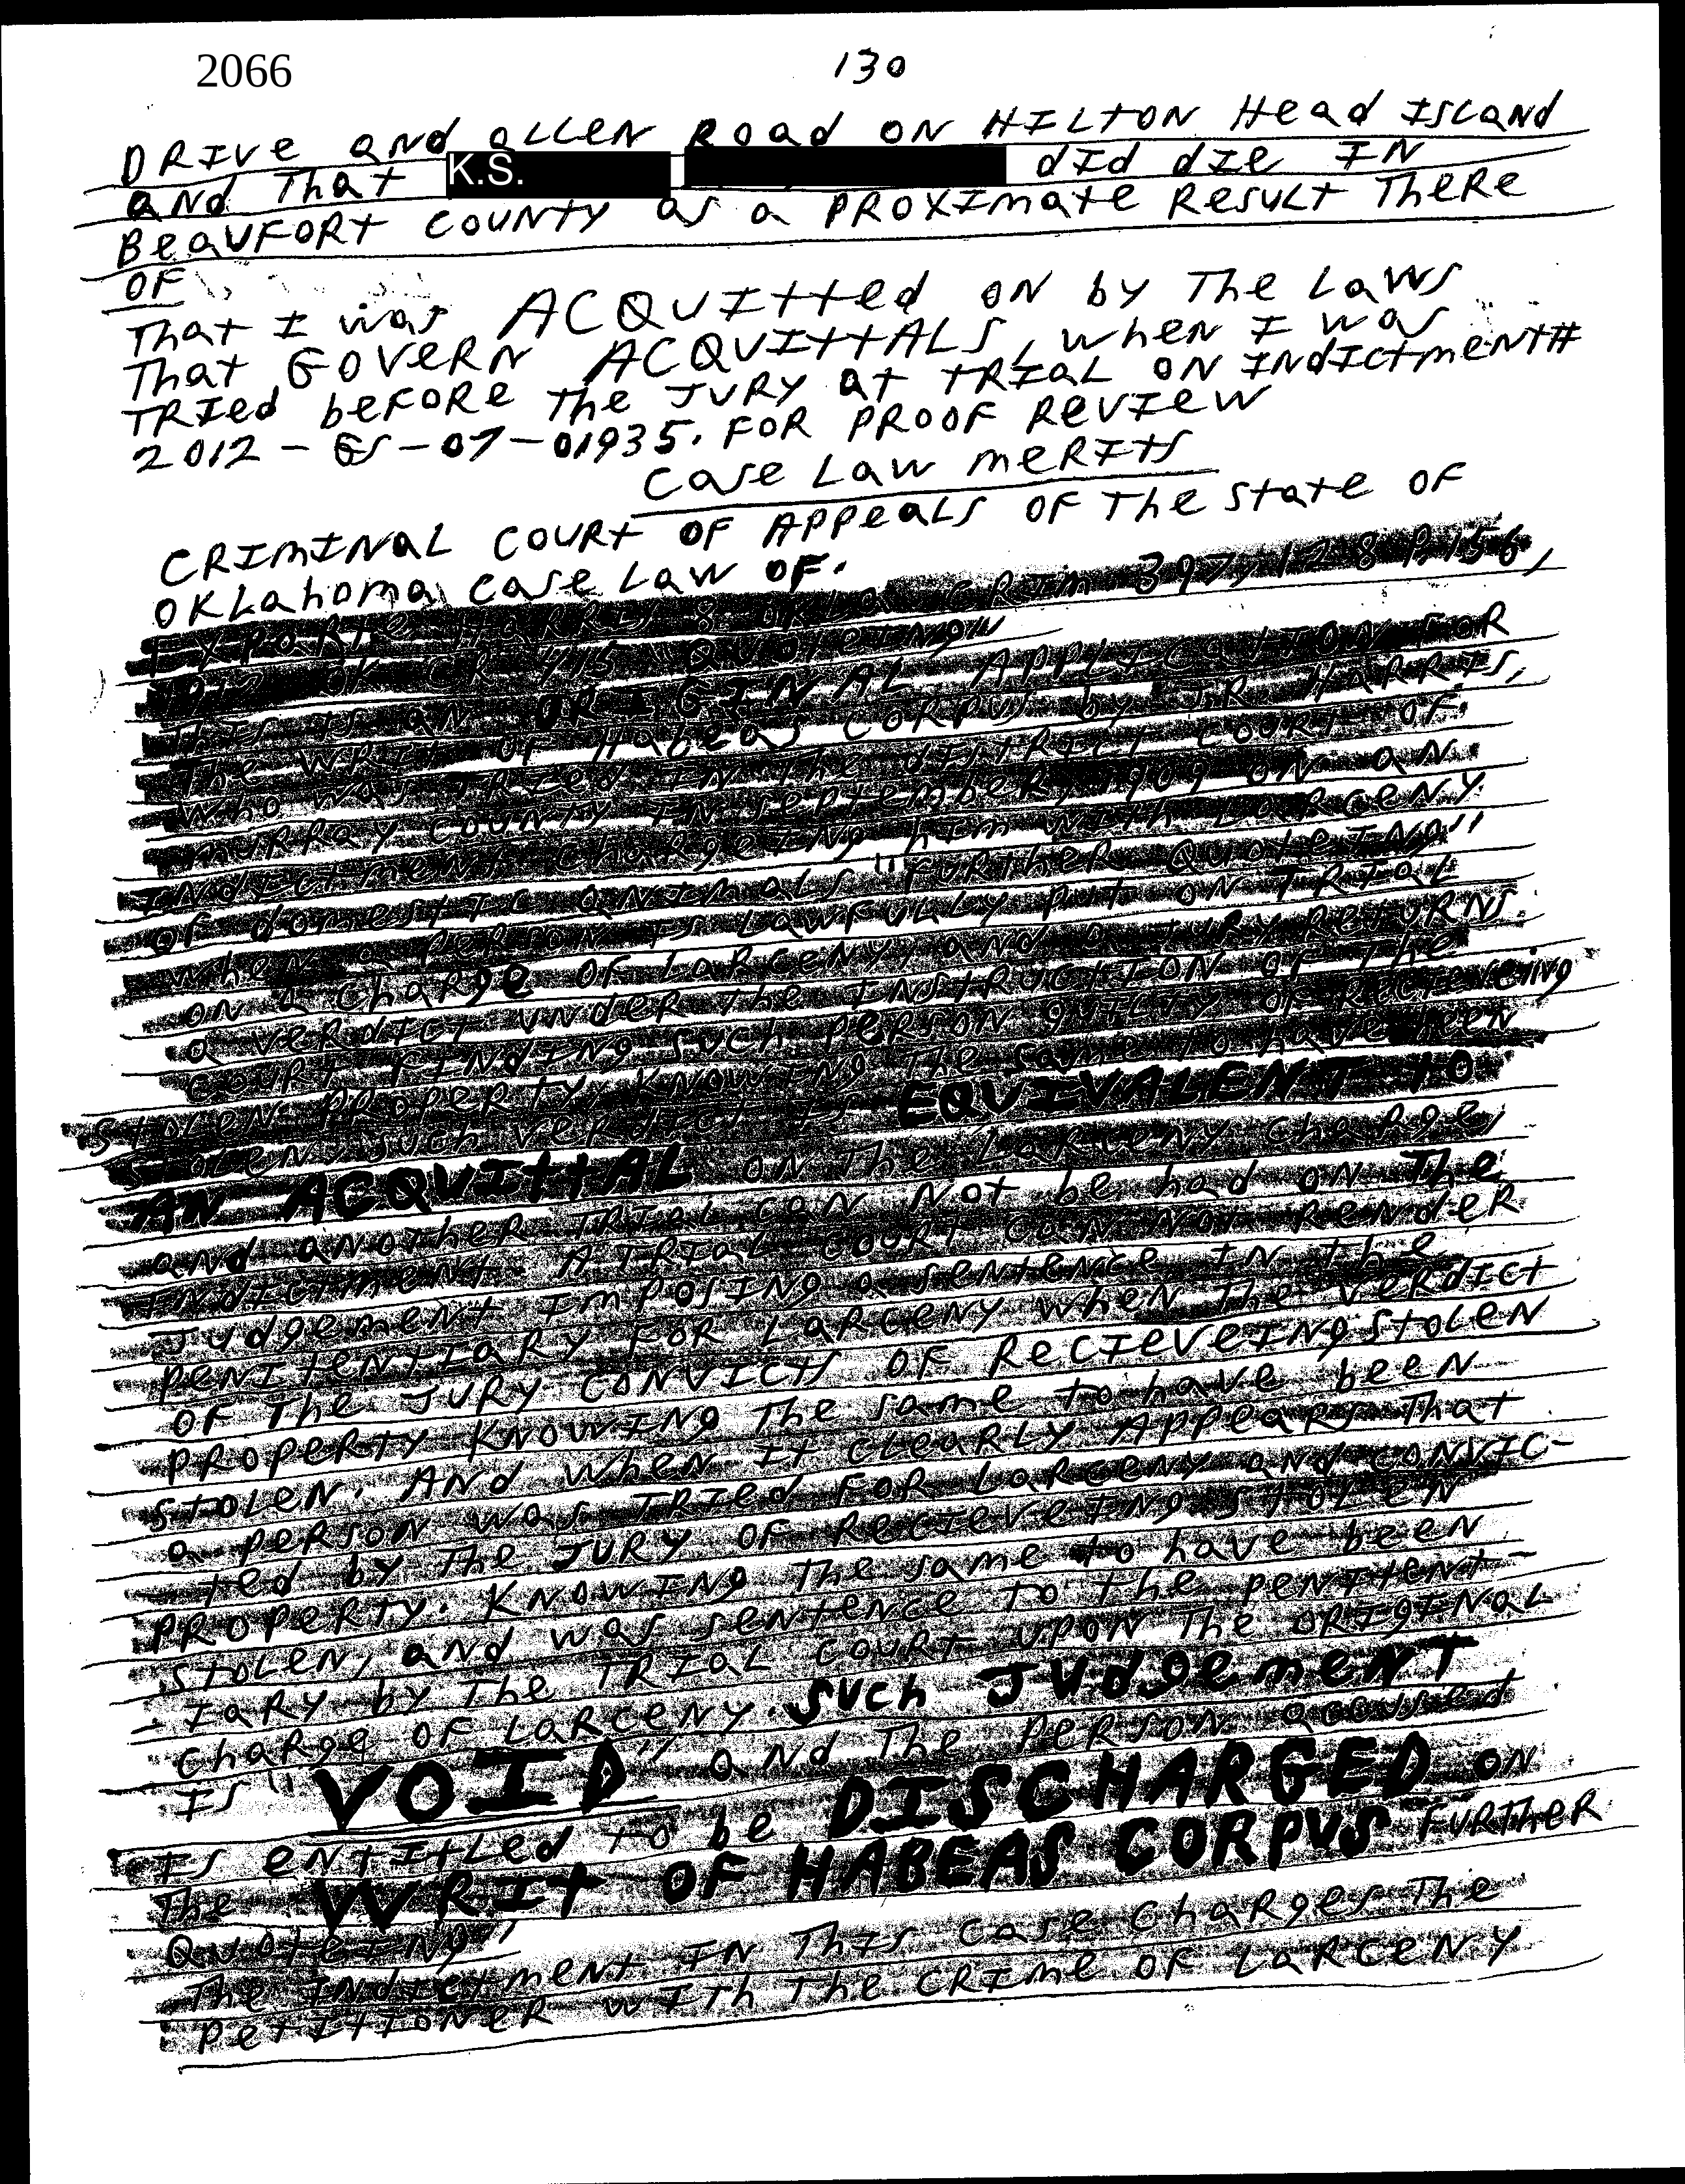 2066
130
DRIVE and ALLEN ROad ON HILTON Head ISLANd
aNd That K.S. did die IN
BeaUFORt COUNty as a PROXImate ResULt TheRe
OF
That I was ACQUItted ON by The Laws
That GOVeRN ACQUITtALS, when I was
TRIed beFORe The JURY at tRIaL ON INdICtmeNt#
2012-GS-07-01935. FOR PROOF ReVIeW
Case Law meRIts
CRImINaL COURt OF APPeaLS OF The State OF
OKLahoma Case Law OF.
EXPaRte HaRRIS 8 OKLa CRIm 397, 128 P. 156,
1912 OK CR 415 QuoteINg"
ThIS IS aN ORIGINAL APPLICatION FOR
The WRIt OF Habeas CORPUS by JR HaRRIS,
Who was TRIed IN The dIStRICt COURt OF
mURRay COUNty IN September 1909 ON aN
INdICtmeNt ChaRgeINg hIm wIth LaRCeNy
OF domeStIC aNImaLS" FURtheR QuoteINg"
When a PeRSON IS LawFULLy PUt ON TRIaL
ON a ChaRge OF LaRCeNy, aNd a JURy RetURNS
a VeRdICt UNdeR The INStRUCtION OF The
COURt FINdINg SUCh PeRSON gUILty OF ReCIeVeing
StOLeN PROPeRty, KNOWINg The Same to have beeN
StOLeN, SUCh VeRdICt IS EQUIVALENT TO
AN ACQUIttAL ON The LaRCeNy ChaRge,
aNd aNOtheR TRIaL CaN Not be had ON The
INdICtmeNt. A TRIaL COURt CaN Not ReNdeR
JUdgemeNt ImPOSINg a SeNteNCe IN the
PeNIteNtIaRy FOR LaRCeNy WheN The VeRdICt
OF The JURy CONVICtS OF ReCIeVeINg StOLeN
PROPeRty KNOWINg The Same to have beeN
StOLeN. ANd WheN It CLeaRLy APPeaRS That
a PeRSON was TRIed FOR LaRCeNy aNd CONVIC-
ted by The JURy OF ReCIeVeINg StOLeN
PROPeRty. KNOWINg The Same to have beeN
StOLeN, aNd was SeNteNCe to the PeNIteNt-
IaRy by The TRIaL COURt UPON The ORIgINaL
ChaRge OF LaRCeNy. SUCh JUdgemeNT
IS "VOID" aNd The PeRSON aCCUSed
IS eNtItLed to be DISCHARGED ON
The WRIt OF HABEAS CORPUS FURtheR
QuoteINg"
The INdICtmeNt IN ThIS CaSe ChaRgeS The
PetItIONeR WIth The CRIme OF LaRCeNy